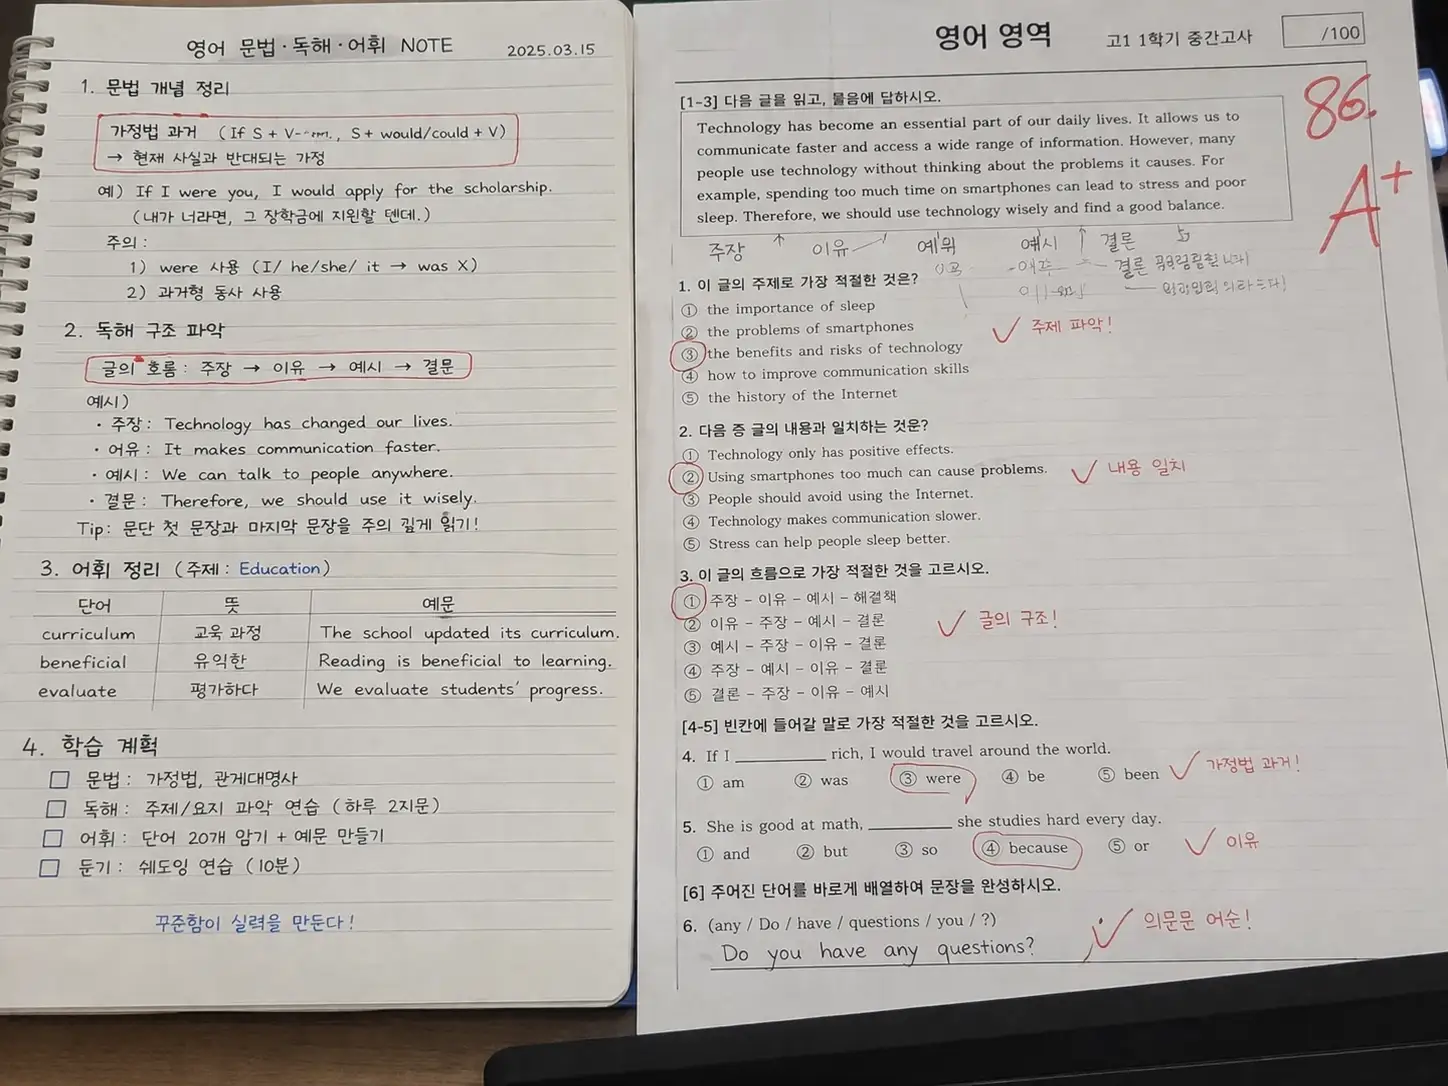 영어 문법·독해·어휘 NOTE
2025.03.15
1. 문법 개념 정리
가정법 과거 (If S + V-, S + would/could + V)
→ 현재 사실과 반대되는 가정
예) If I were you, I would apply for the scholarship.
(내가 너라면, 그 장학금에 지원할 텐데.)
주의 :
1) were 사용 (I/ he/she/ it → was X)
2) 과거형 동사 사용
2. 독해 구조 파악
글의 흐름 : 주장 → 이유 → 예시 → 결문
예시)
· 주장 : Technology has changed our lives.
· 어유 : It makes communication faster.
· 예시 : We can talk to people anywhere.
· 결문 : Therefore, we should use it wisely.
Tip: 문단 첫 문장과 마지막 문장을 주의 깊게 읽기!
3. 어휘 정리 (주제 : Education)
단어 뜻 예문
curriculum 교육 과정 The school updated its curriculum.
beneficial 유익한 Reading is beneficial to learning.
evaluate 평가하다 We evaluate students' progress.
4. 학습 계획
□ 문법 : 가정법, 관계대명사
□ 독해 : 주제/요지 파악 연습 (하루 2지문)
□ 어휘 : 단어 20개 암기 + 예문 만들기
□ 듣기 : 쉐도잉 연습 (10분)
꾸준함이 실력을 만든다!
영어 영역
고1 1학기 중간고사
/100
86.
A+
[1-3] 다음 글을 읽고, 물음에 답하시오.
Technology has become an essential part of our daily lives. It allows us to
communicate faster and access a wide range of information. However, many
people use technology without thinking about the problems it causes. For
example, spending too much time on smartphones can lead to stress and poor
sleep. Therefore, we should use technology wisely and find a good balance.
주장 ↑ 이유 예시 ↑ 결론
결론
1. 이 글의 주제로 가장 적절한 것은?
① the importance of sleep
② the problems of smartphones
✓ 주제 파악!
③ the benefits and risks of technology
④ how to improve communication skills
⑤ the history of the Internet
2. 다음 중 글의 내용과 일치하는 것운?
① Technology only has positive effects.
② Using smartphones too much can cause problems.
✓ 내용 일치
③ People should avoid using the Internet.
④ Technology makes communication slower.
⑤ Stress can help people sleep better.
3. 이 글의 흐름으로 가장 적절한 것을 고르시오.
① 주장 - 이유 - 예시 - 해결책
② 이유 - 주장 - 예시 - 결론
✓ 글의 구조!
③ 예시 - 주장 - 이유 - 결론
④ 주장 - 예시 - 이유 - 결론
⑤ 결론 - 주장 - 이유 - 예시
[4-5] 빈칸에 들어갈 말로 가장 적절한 것을 고르시오.
4. If I ________ rich, I would travel around the world.
① am ② was ③ were ④ be ⑤ been
✓ 가정법 과거!
5. She is good at math, ________ she studies hard every day.
① and ② but ③ so ④ because ⑤ or
✓ 이유
[6] 주어진 단어를 바로게 배열하여 문장을 완성하시오.
6. (any / Do / have / questions / you / ?)
Do you have any questions?
✓ 의문문 어순!